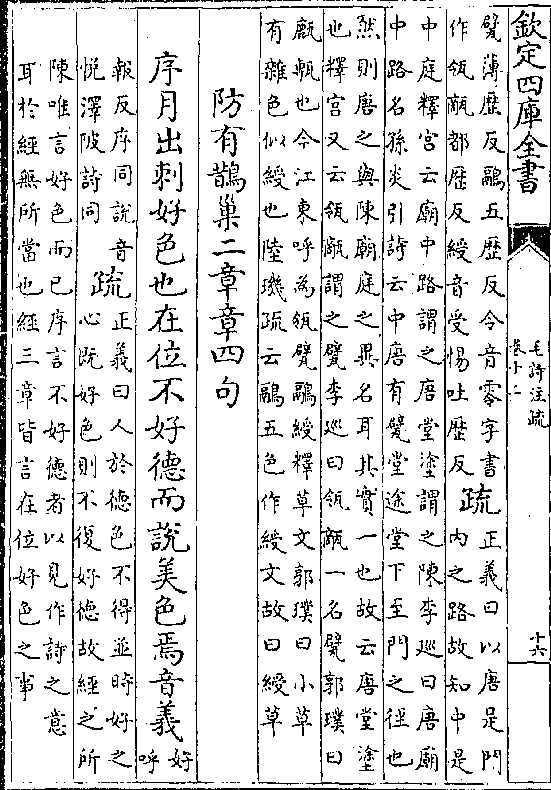 欽定四庫全書
毛詩注疏
卷十二
十六
甓薄歷反鷊五歷反令音零字書
作瓴甋都歷反綬音受惕吐歷反
疏
正義曰以唐是門
内之路故知中是
中庭釋宫云廟中路謂之唐堂塗謂之陳李廵曰唐廟
中路名孫炎引詩云中唐有甓堂途堂下至門之徑也
然則唐之與陳廟庭之異名耳其實一也故云唐堂塗
也釋宫又云瓴甋謂之甓李廵曰瓴甋一名甓郭璞曰
㼾甎也今江東呼為瓴甓鷊綬釋草文郭璞曰小草
有雜色似綬也陸璣疏云鷊五色作綬文故曰綬草
防有鵲巢二章章四句
序月出刺好色也在位不好德而説美色焉音義
好
呼
報反序同説音
悦澤陂詩同
疏
正義曰人於德色不得並時好之
心既好色則不復好德故經之所
陳唯言好色而已序言不好德者以見作詩之意
耳於經無所當也經三章皆言在位好色之事